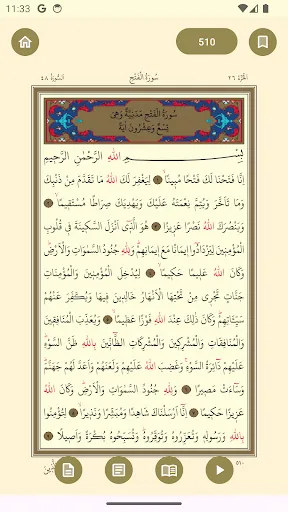 11:33
510
الجزء ٢٦
سُورَةُ الْفَتْحِ
السورة ٤٨
سُورَةُ الْفَتْحِ مَدَنِيَّةٌ وَهِيَ
تِسْعٌ وَعِشْرُونَ آيَةً
بِسْمِ اللهِ الرَّحْمٰنِ الرَّحِيمِ
اِنَّا فَتَحْنَا لَكَ فَتْحًا مُبِينًا ۙ ١ لِيَغْفِرَ لَكَ اللهُ مَا تَقَدَّمَ مِنْ ذَنْبِكَ
وَمَا تَاَخَّرَ وَيُتِمَّ نِعْمَتَهُ عَلَيْكَ وَيَهْدِيَكَ صِرَاطًا مُسْتَقِيمًا ۙ ٢
وَيَنْصُرَكَ اللهُ نَصْرًا عَزِيزًا ٣ هُوَ الَّذِى اَنْزَلَ السَّكِينَةَ فِى قُلُوبِ
الْمُؤْمِنِينَ لِيَزْدَادُوا اِيمَانًا مَعَ اِيمَانِهِمْ وَلِلهِ جُنُودُ السَّمٰوَاتِ وَالْاَرْضِ
وَكَانَ اللهُ عَلِيمًا حَكِيمًا ۙ ٤ لِيُدْخِلَ الْمُؤْمِنِينَ وَالْمُؤْمِنَاتِ
جَنَّاتٍ تَجْرِى مِنْ تَحْتِهَا الْاَنْهَارُ خَالِدِينَ فِيهَا وَيُكَفِّرَ عَنْهُمْ
سَيِّـَٔاتِهِمْ وَكَانَ ذٰلِكَ عِنْدَ اللهِ فَوْزًا عَظِيمًا ۙ ٥ وَيُعَذِّبَ الْمُنَافِقِينَ
وَالْمُنَافِقَاتِ وَالْمُشْرِكِينَ وَالْمُشْرِكَاتِ الظَّانِّينَ بِاللهِ ظَنَّ السَّوْءِ
عَلَيْهِمْ دَائِرَةُ السَّوْءِ وَغَضِبَ اللهُ عَلَيْهِمْ وَلَعَنَهُمْ وَاَعَدَّ لَهُمْ جَهَنَّمَ
وَسَاءَتْ مَصِيرًا ٦ وَلِلهِ جُنُودُ السَّمٰوَاتِ وَالْاَرْضِ وَكَانَ اللهُ
عَزِيزًا حَكِيمًا ٧ اِنَّا اَرْسَلْنَاكَ شَاهِدًا وَمُبَشِّرًا وَنَذِيرًا ۙ ٨ لِتُؤْمِنُوا
بِاللهِ وَرَسُولِهِ وَتُعَزِّرُوهُ وَتُوَقِّرُوهُ وَتُسَبِّحُوهُ بُكْرَةً وَاَصِيلًا ٩
٥١٠